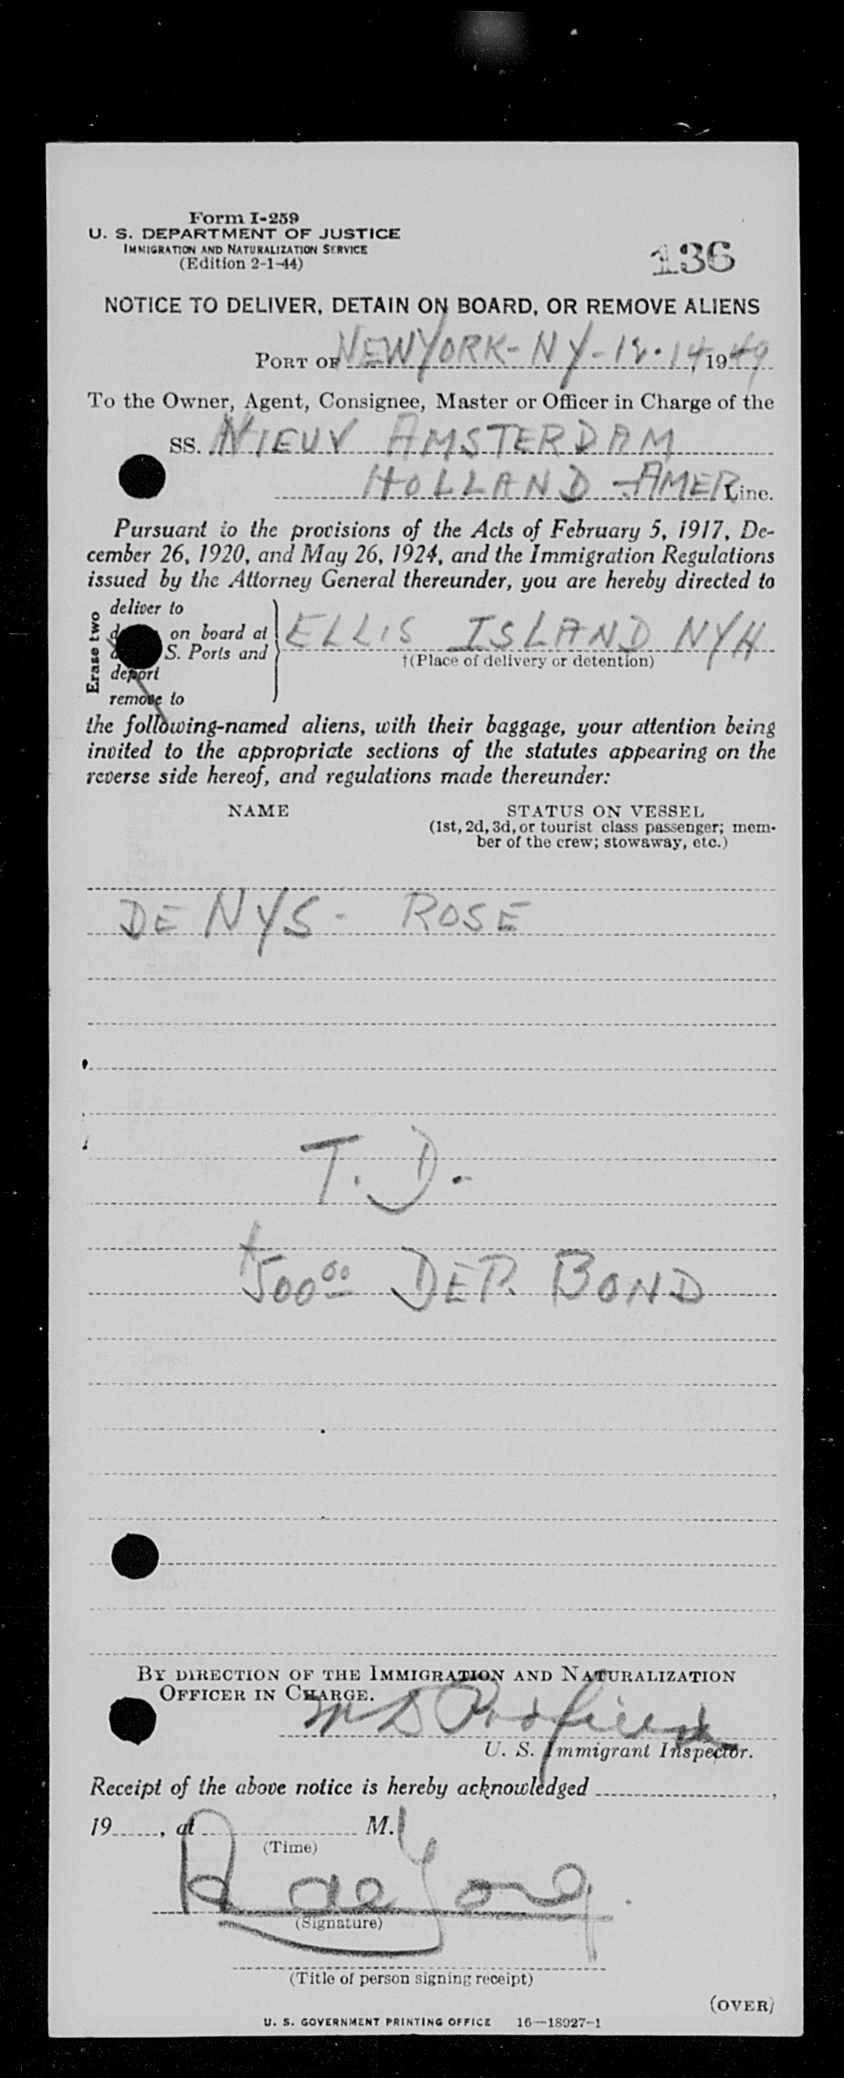 Form I-259
U. S. DEPARTMENT OF JUSTICE
IMMIGRATION AND NATURALIZATION SERVICE
(Edition 2-1-44)
136
NOTICE TO DELIVER, DETAIN ON BOARD, OR REMOVE ALIENS
PORT OF NEW YORK - NY - 12.14 1949
To the Owner, Agent, Consignee, Master or Officer in Charge of the
SS. NIEUV AMSTERDAM
HOLLAND - AMER Line.
Pursuant to the provisions of the Acts of February 5, 1917, De-
cember 26, 1920, and May 26, 1924, and the Immigration Regulations
issued by the Attorney General thereunder, you are hereby directed to
Erase two
deliver to
on board at
S. Ports and
deport
remove to
ELLIS ISLAND NYH
†(Place of delivery or detention)
the following-named aliens, with their baggage, your attention being
invited to the appropriate sections of the statutes appearing on the
reverse side hereof, and regulations made thereunder:
NAME
STATUS ON VESSEL
(1st, 2d, 3d, or tourist class passenger; mem-
ber of the crew; stowaway, etc.)
DE NYS - ROSE
T. D.
$500.00 DEP. BOND
BY DIRECTION OF THE IMMIGRATION AND NATURALIZATION
OFFICER IN CHARGE.
U. S. Immigrant Inspector.
Receipt of the above notice is hereby acknowledged
19, at M.
(Time)
de Jong
(Signature)
(Title of person signing receipt)
(OVER)
U. S. GOVERNMENT PRINTING OFFICE 16—18927-1